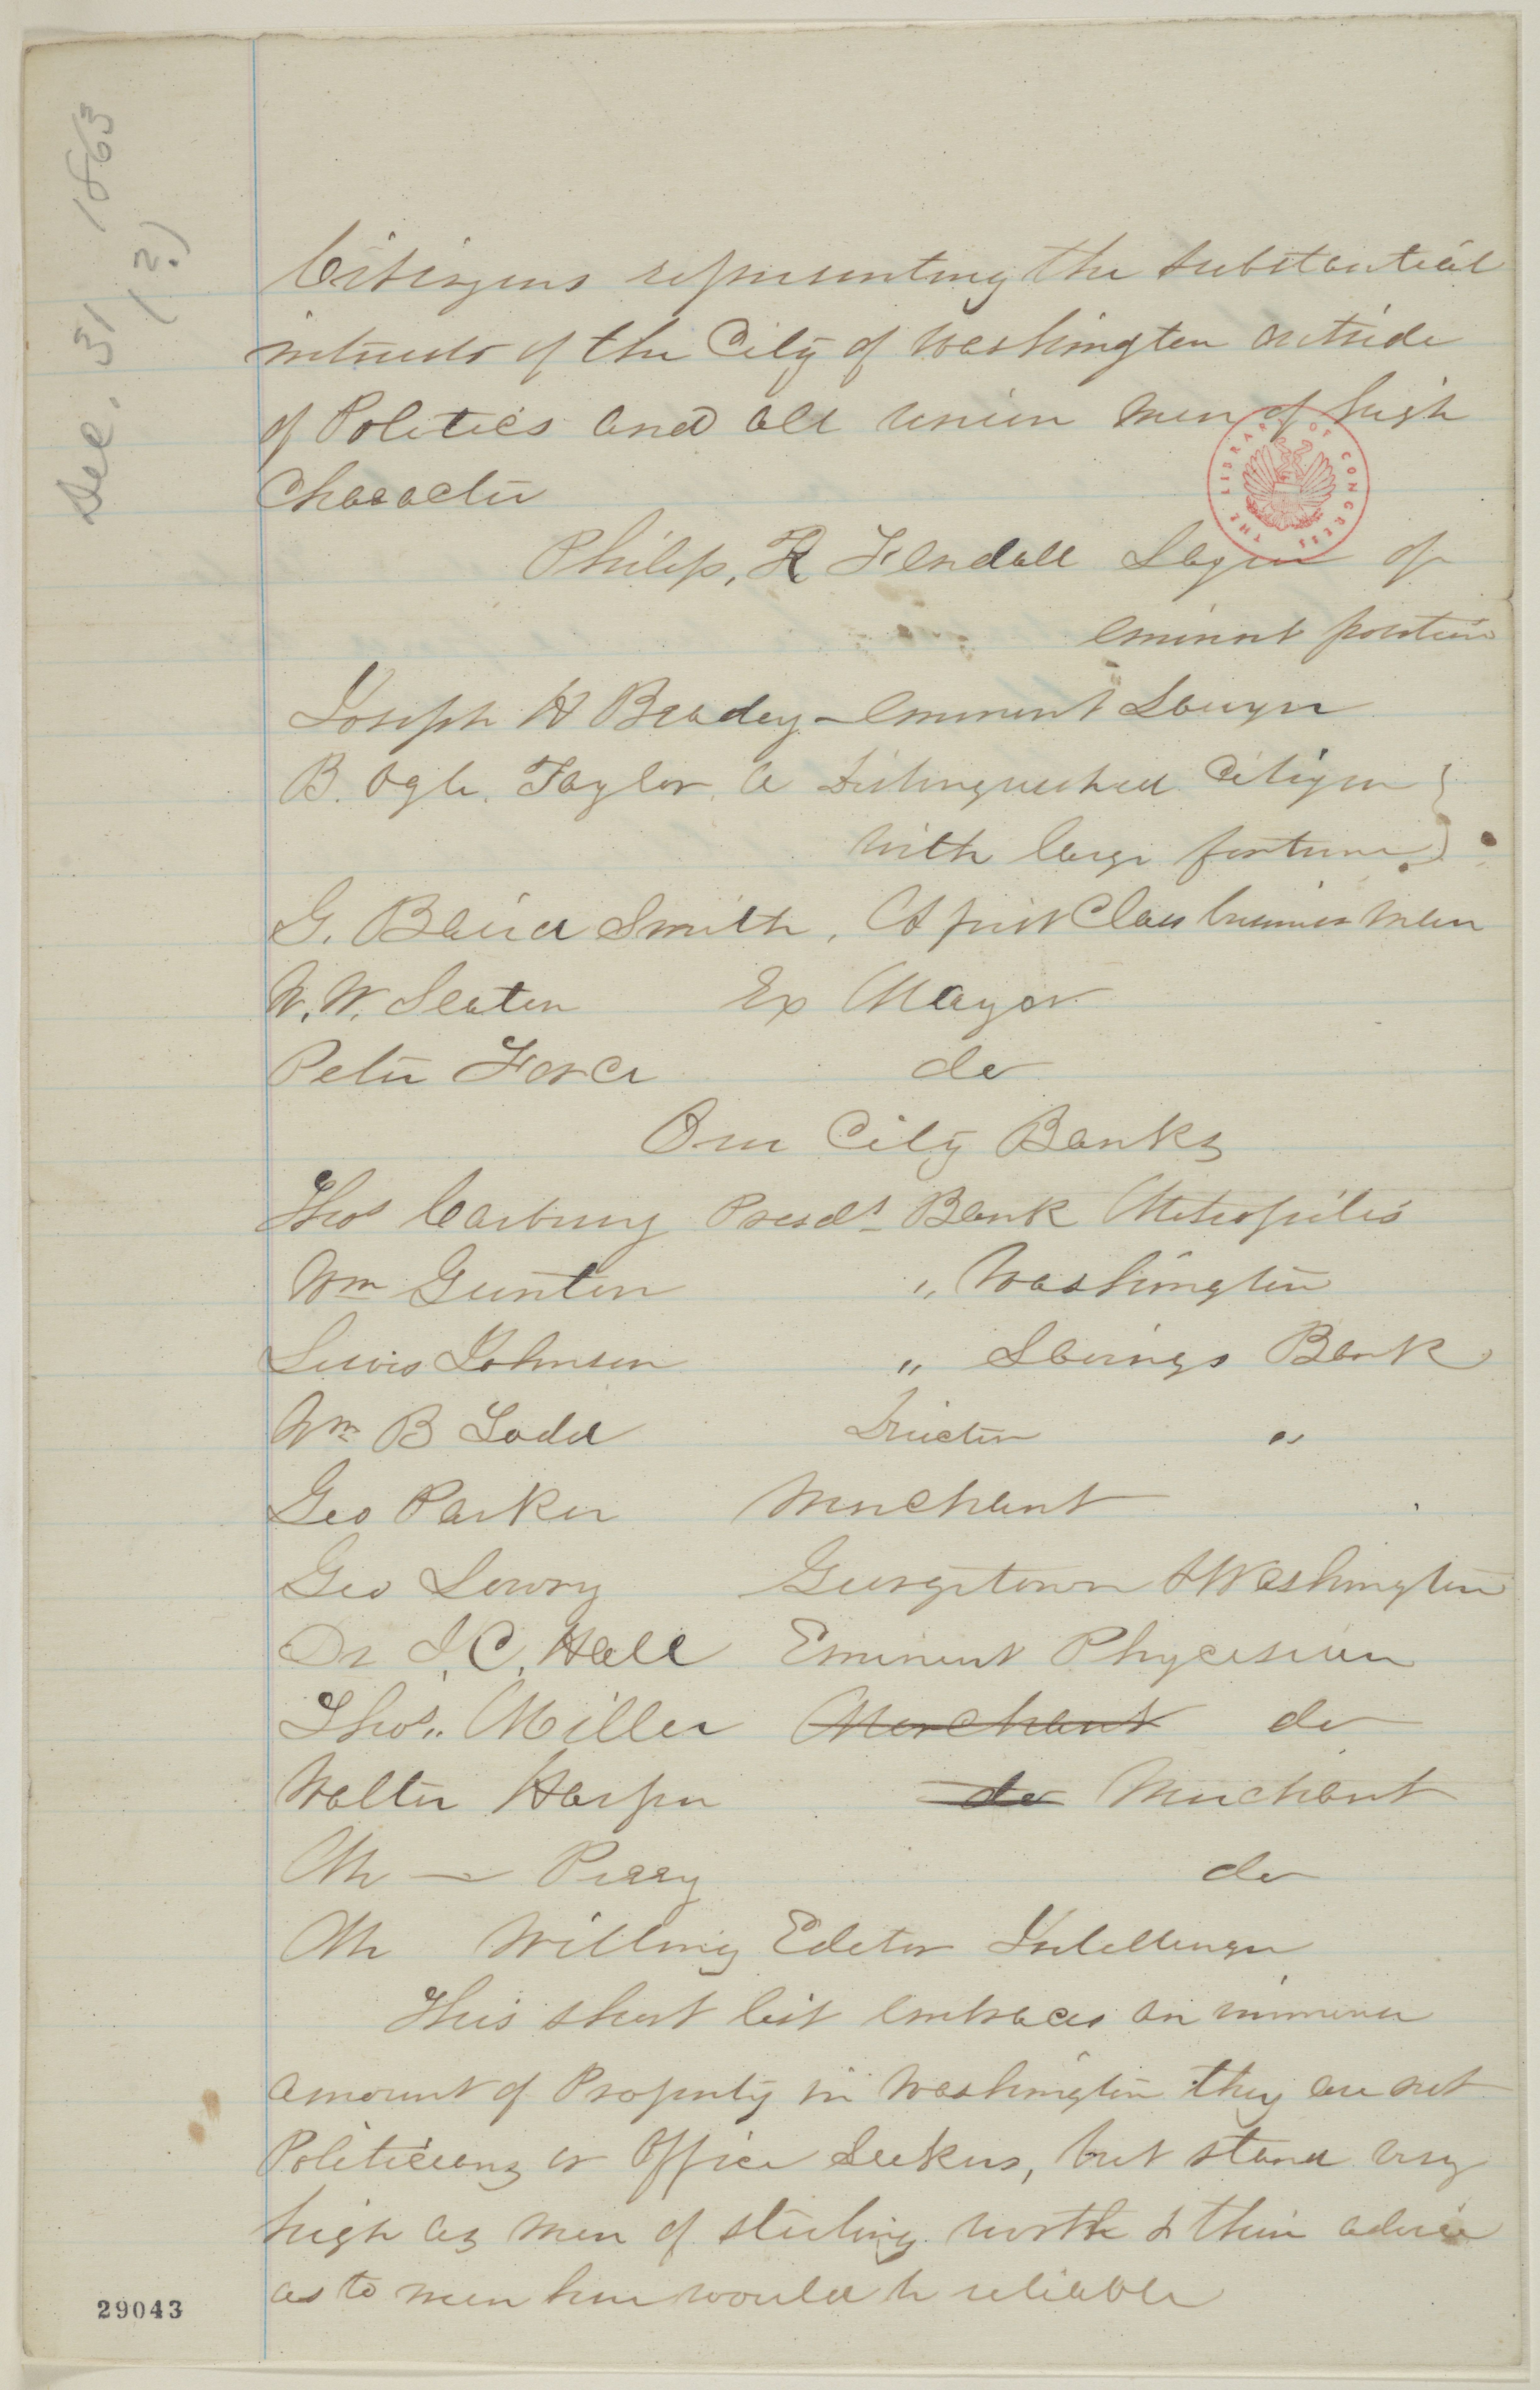 Dec. 31 1863
(?)
Citizens representing the substantial
interests of the City of Washington outside
of Politics and all Union Men of high
Character
THE LIBRARY OF CONGRESS
Philip, R Fendall Lawyer of
eminent position
Joseph H Bradley - Eminent Lawyer
B. Ogle. Taylor. A Distinguished Citizen
with large fortune
G. Baird Smith, A first Class business Man
W. W. Seaton Ex Mayor
Peter Force do
Our City Banks
Thos Carbury Presdt Bank Metropolis
Wm Gunton " Washington
Lewis Johnson " Savings Bank
Wm B Todd Director "
Geo Parker Merchant
Geo Lowry Georgetown & Washington
Dr J. C. Hall Eminent Phycisian
Thos. Miller Merchant do
Walter Harper do Merchant
Mr — Perry do
Mr Willing Editor Intellinger
This short list embraces an immense
amount of Property in Washington they are not
Politicians or Office Seekers, but stand very
high as men of sterling worth & their advice
as to men here would be reliable
29043